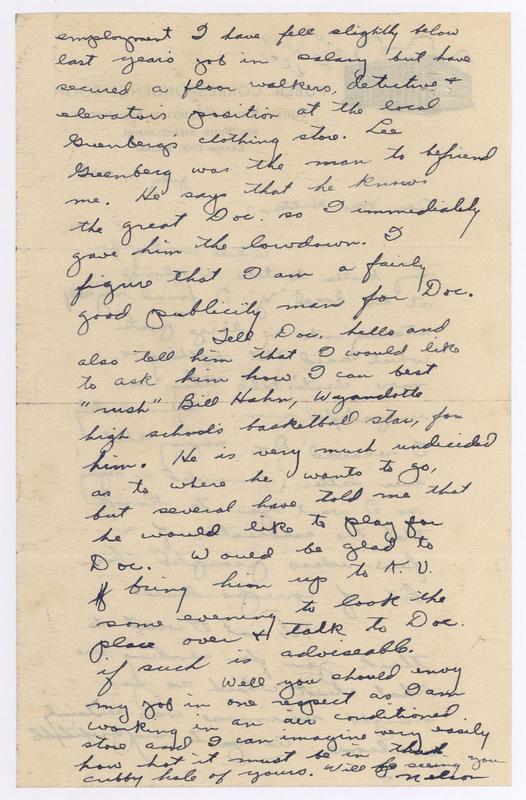 employment I have fell slightly below
last year's job in salary but have
secured a floor walkers, detective &
elevators position at the local
Greenbergs clothing store. Lee
Greenberg was the man to befriend
me. He says that he knows
the great Doc. so I immediately
gave him the lowdown. I
figure that I am a fairly
good publicity man for Doc.
Tell Doc. hello and
also tell him that I would like
to ask him how I can best
"rush" Bill Hahn, Wyandotte
high school's basketball star, for
him. He is very much undecided
as to where he wants to go,
but several have told me that
he would like to play for
Doc. Would be glad to
bring him up to K.U.
some evening to look the
place over & talk to Doc.
if such is adviseable.
Well you should envy
my job in one respect as I am
working in an air conditioned
store and I can imagine very easily
how hot it must be in that
cubby hole of yours. Will be seeing you
Nelson